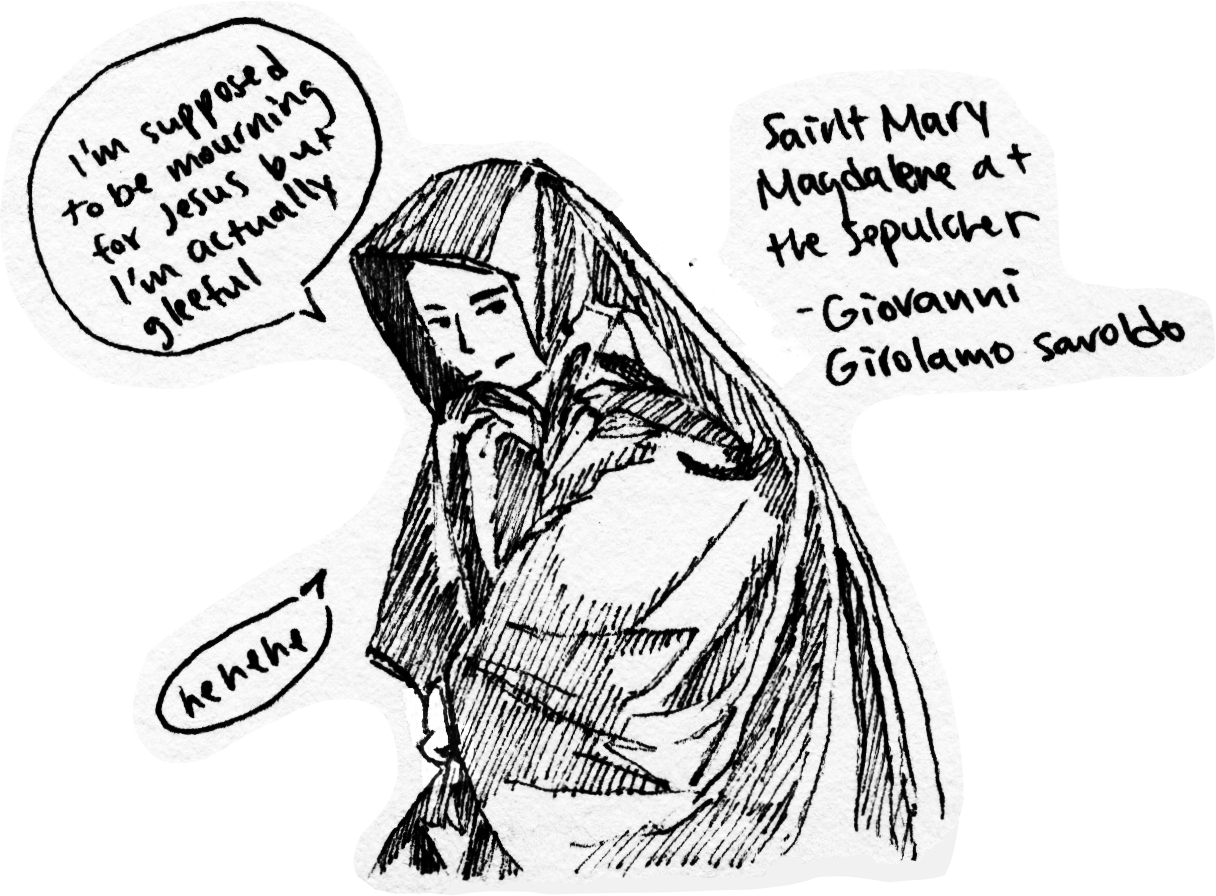 I'm supposed
to be mourning
for Jesus but
I'm actually
gleeful
Saint Mary
Magdalene at
the Sepulcher
-Giovanni
Girolamo Savoldo
hehehe